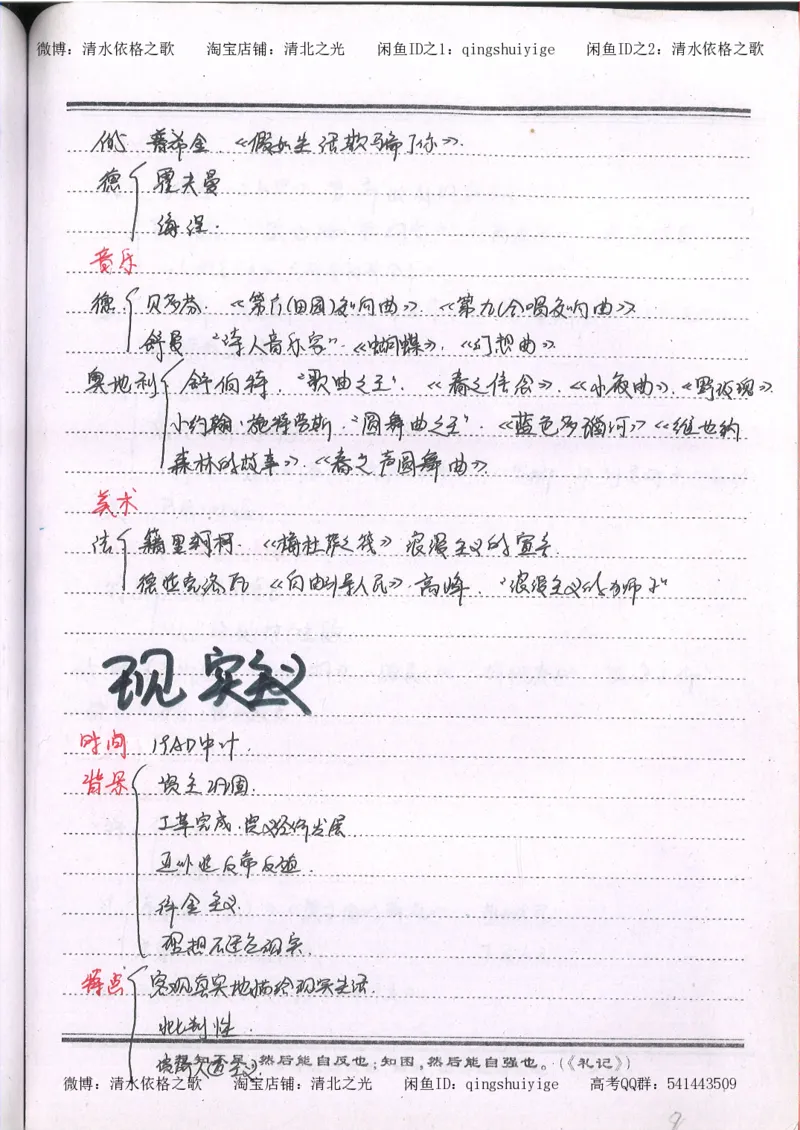 微博：清水依格之歌 淘宝店铺：清北之光 闲鱼ID之1：qingshuiyige 闲鱼ID之2：清水依格之歌
俄 普希金 《假如生活欺骗了你》.
德 霍夫曼
海涅.
音乐
德. 贝多芬. 《第六(田园)交响曲》. 《第九(合唱)交响曲》
舒曼 "诗人音乐家". 《蝴蝶》. 《幻想曲》
奥地利 舒伯特. "歌曲之王". 《春之信念》.《小夜曲》.《野玫瑰》.
小约翰·施特劳斯. "圆舞曲之王". 《蓝色多瑙河》《维也纳
森林的故事》.《春之声圆舞曲》
美术
法 籍里柯. 《梅杜莎之筏》 浪漫主义的宣言.
德拉克洛瓦 《自由引导人民》. 高峰. "浪漫主义的狮子"
现实主义
时间 19AD中叶.
背景 资主巩固.
工革完成.资义经济发展
亚非拉反帝反殖.
拜金主义.
理想不适合现实.
特点 客观真实地描绘现实生活.
批判性.
人道主义.
知不足，然后能自反也；知困，然后能自强也。(《礼记》)
微博：清水依格之歌 淘宝店铺：清北之光 闲鱼ID：qingshuiyige 高考QQ群：541443509